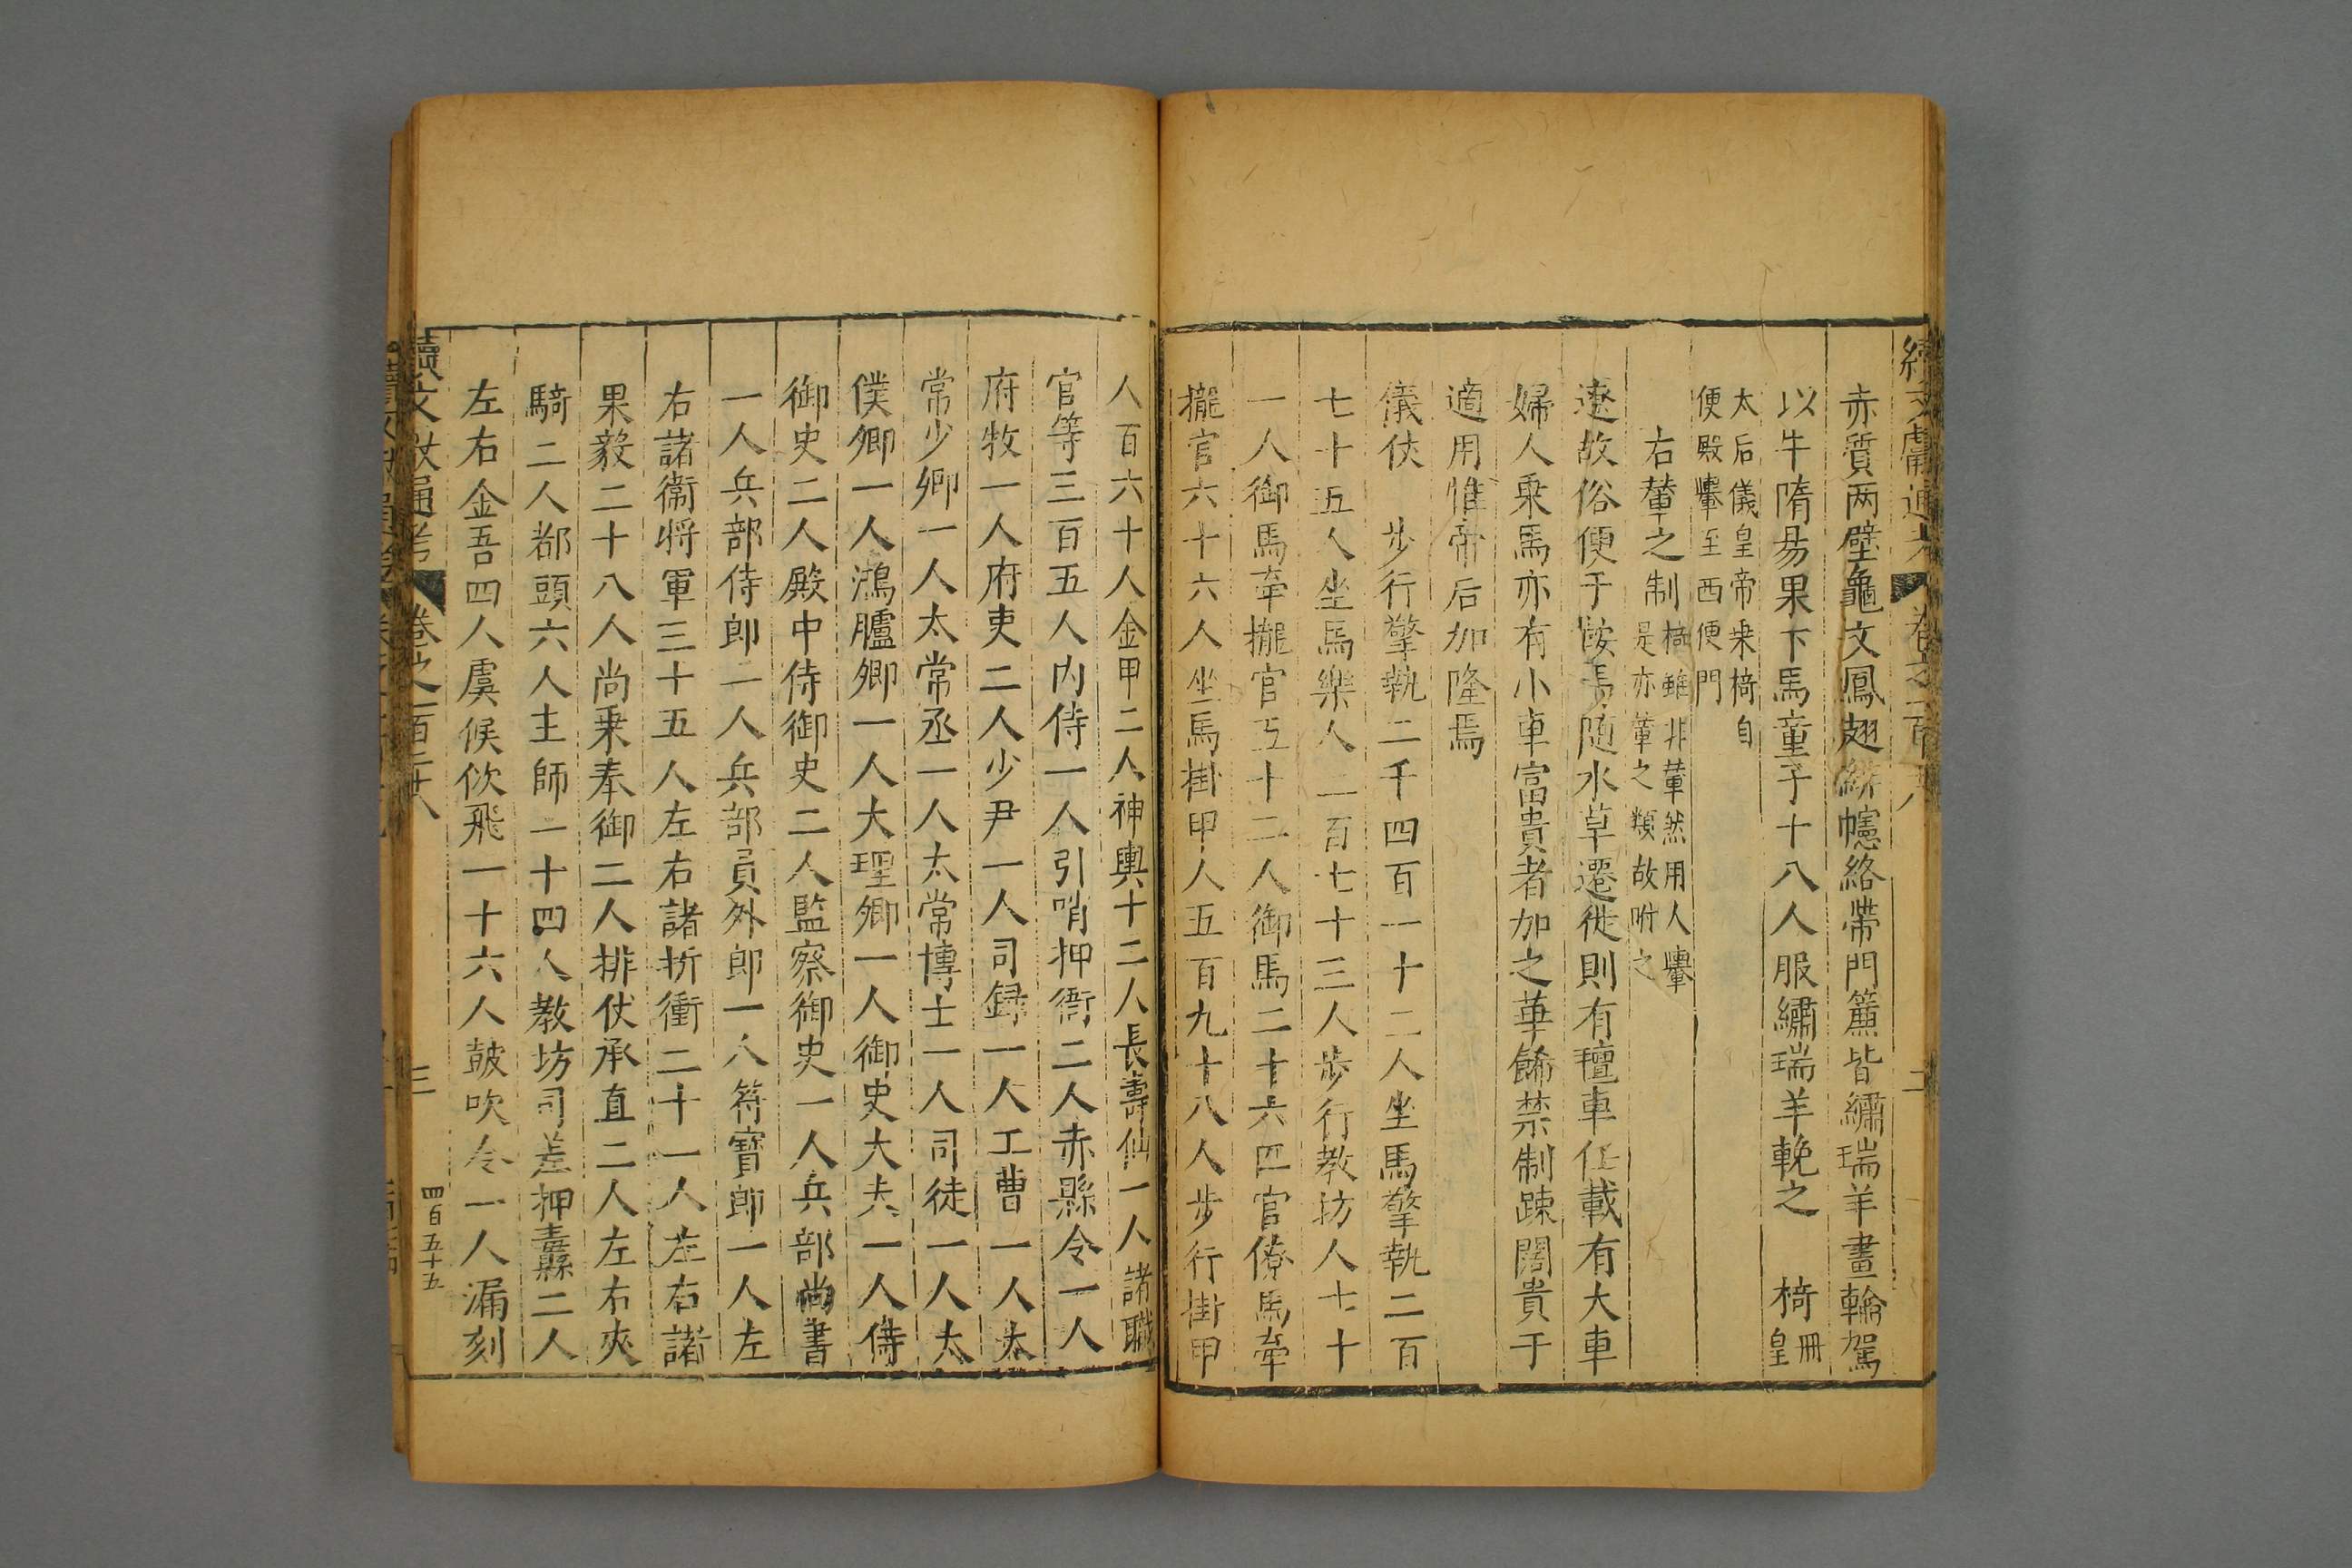 赤質两壁龜文鳳翅緋幰絡帶門簾皆繡瑞羊畫輪駕
以牛隋易果下馬童子十八人服繡瑞羊輓之　椅冊皇
太后儀皇帝乘椅自
便殿轝至西便門
右輦之制椅雖非輦然用人轝
是亦輦之類故附之
遼故俗便于鞍馬随水草遷徙則有氊車任載有大車
婦人乘馬亦有小車富貴者加之華餙禁制踈闊貴于
適用惟帝后加隆焉
儀伏　步行擎執二千四百一十二人坐馬擎執二百
七十五人坐馬樂人二百七十三人步行教坊人七十
一人御馬牽攏官五十二人御馬二十六匹官僚馬牽
攏官六十六人坐馬掛甲人五百九十八人步行掛甲
人百六十人金甲二人神輿十二人長壽仙一人諸職
官等三百五人内侍一人引哨押衙二人赤縣令一人
府牧一人府吏二人少尹一人司録一人工曹一人太
常少卿一人太常丞一人太常博士一人司徒一人太
僕卿一人鴻臚卿一人大理卿一人御史大夫一人侍
御史二人殿中侍御史二人監察御史一人兵部尚書
一人兵部侍郎二人兵部員外郎一人符寶郎一人左
右諸衞將軍三十五人左右諸折衝二十一人左右諸
果毅二十八人尚乘奉御二人排仗承直二人左右夾
騎二人都頭六人主師一十四人教坊司差押纛二人
左右金吾四人虞候佽飛一十六人皷吹令一人漏刻
續文獻通考　卷之一百三十八　三　四百五十五